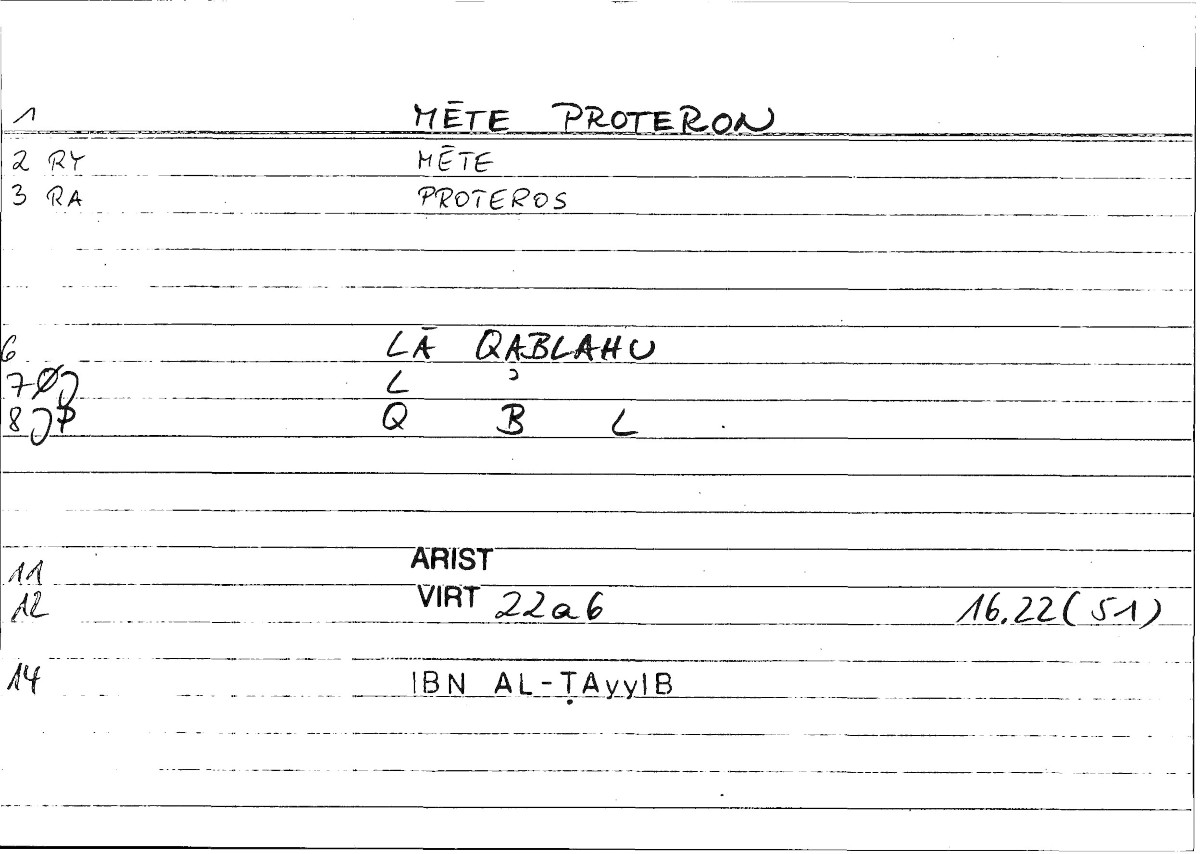 1 MĒTE PROTERON
2 RY MĒTE
3 RA PROTEROS
6 LĀ QABLAHU
7 ØJ L ʾ
8 JP Q B L
11 ARIST
12 VIRT 22a6 16.22(51)
14 IBN AL-ṬAyyIB